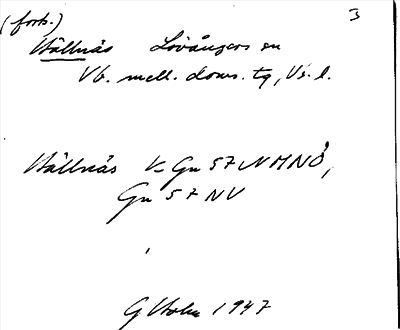 (forts.) 3
Hällnäs Lövångers sn
Vb. mell. doms. tg, Vb. l.
Hällnäs V Gn 57 NMNÖ,
Gn 57 NV
G Holm 1947